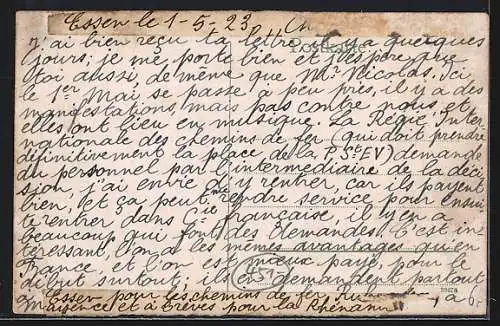 Essen le 1-5-23
Postkarte
j'ai bien reçu ta lettre il y a quelques
jours; je me porte bien et j'espère que
toi aussi, de même que Mr Nicolas. Ici
le 1er Mai se passe à peu près, il y a des
manifestations, mais pas contre nous et
elles ont lieu en musique. La Régie Inter
nationale des chemins de fer (qui doit prendre
définitivement la place de la P. St. EV) demande
du personnel par l'intermédiaire de la déci
sion, j'ai envie d'y rentrer, car ils payent
bien, et ça peut me rendre service pour ensui
te rentrer dans Cie française il y en a
beaucoup qui font des demandes. C'est in
téressant, l'on a les mêmes avantages qu'en
France, et l'on est mieux payé, pour le
début surtout; ils en demandent partout
Essen pour les chemins de fer, à
Mayence et à Trèves pour la Rhénanie
451